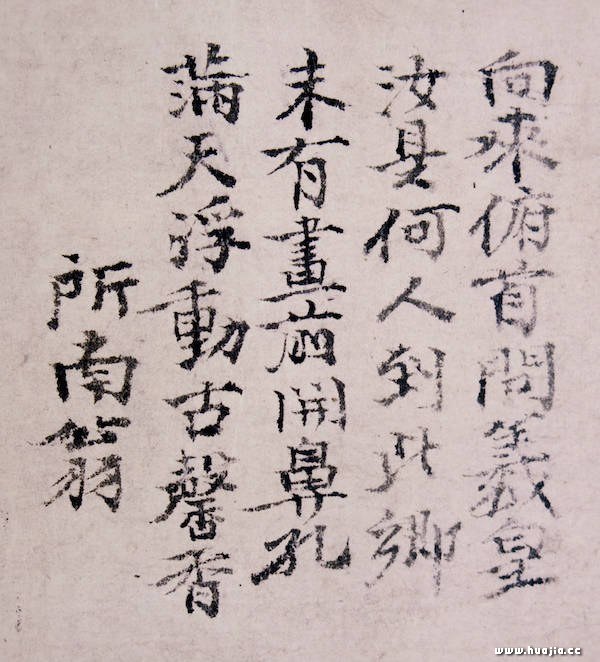 向來俯首問羲皇
汝是何人到此鄉
未有畫前開鼻孔
滿天浮動古馨香
所南翁
www.huajia.cc